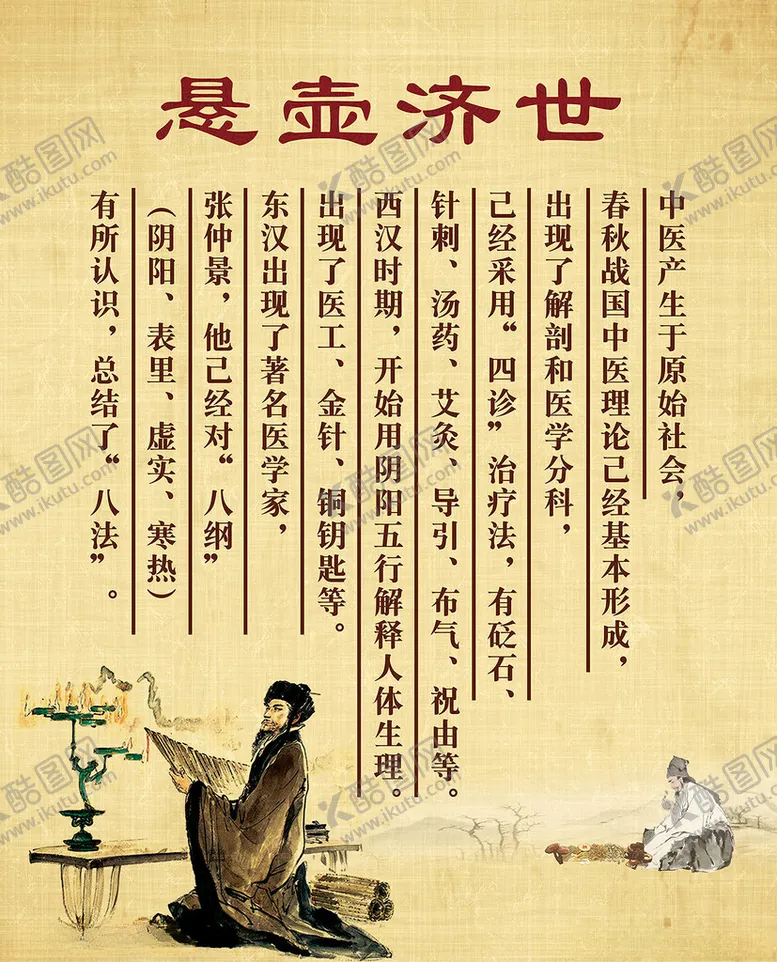 悬壶济世
中医产生于原始社会，
春秋战国中医理论己经基本形成，
出现了解剖和医学分科，
己经采用“四诊”治疗法，有砭石、
针刺、汤药、艾灸、导引、布气、祝由等。
西汉时期，开始用阴阳五行解释人体生理。
出现了医工、金针、铜钥匙等。
东汉出现了著名医学家，
张仲景，他己经对“八纲”
（阴阳、表里、虚实、寒热）
有所认识，总结了“八法”。
酷图网
www.ikutu.com